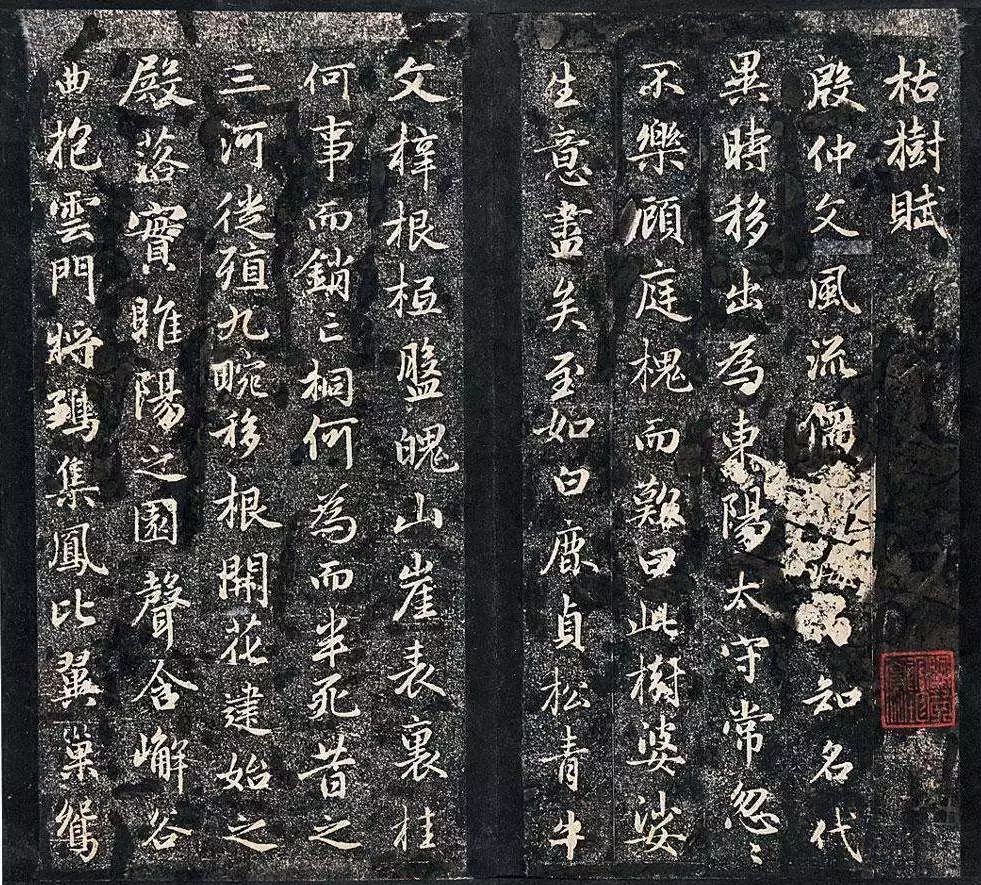 枯樹賦
殷仲文風流儒知名代
異時移出為東陽太守常忽〻
不樂顧庭槐而歎曰此樹婆娑
生意盡矣至如白鹿貞松青牛
文梓根柢盤魄山崖表裏桂
何事而銷亡桐何為而半死昔之
三河徙殖九畹移根開花建始之
殿落實睢陽之園聲含嶰谷
曲抱雲門將鶵集鳳比翼巢鴛